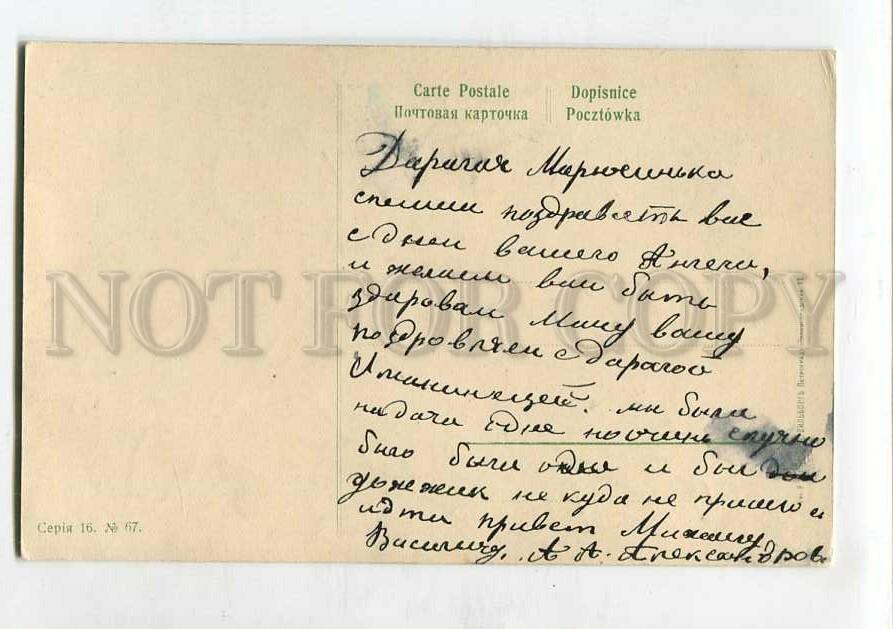 Carte Postale
Почтовая карточка
Dopisnice
Pocztówka
Дарагая Марюсинька
спешим поздравсть вас
с днем вашего Ангела,
и желаем вам быть
здаровам Маму вашу
поздровляем с дарагой
Имянинецей. мы были
на дачи но очень скучно
было были одне и был
дожжик не куда не пришлос
идти привет Михаилу
Василичу. А А. Александров
Серія 16. № 67.
NOT FOR COPY